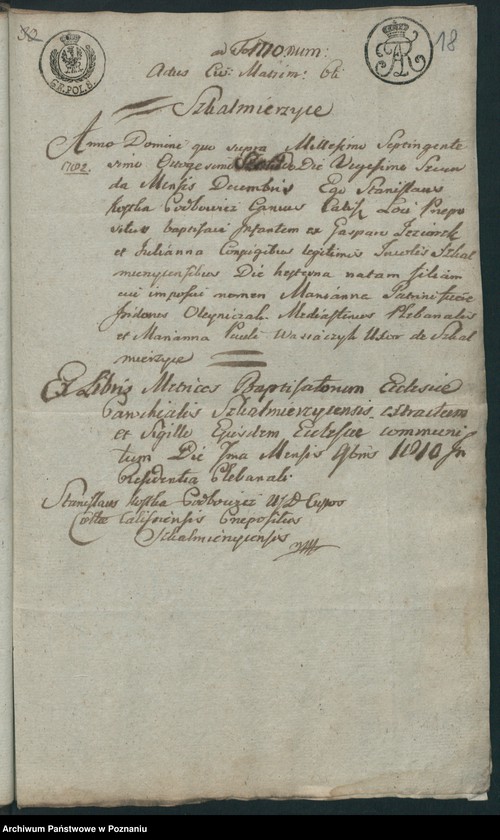 82
18
GR. POL. 8
FAR
ad N 110 num:
Actus Civ: Matrim: 66
Szkalmierzyce
Anno Domini quo supra Millesimo Septingente
simo Octogesimo Secundo Die Vegesima Secun
1782.
da Mensis Decembris Ego Stanislaus
Kostka Podbowicz Canus Calis. Loci Prepo
situs baptisavi Infantem ex Gaspari
et Julianna Conjugibus legitimis Incolis Szkal
mierzycensibus Die hesterna natam filiam
cui imposui nomen Marianna Patrini fuere
Oleyniczak Mediastinus Plebanalis
et Marianna Pauli Uxor de Szkal
mierzyce
Ex Libris Metrices Baptisatorum Ecclesiae
Parochialis Szkalmierzycensis extractum
et Sigillo Ejusdem Ecclesiae communi
tum Die Ima Mensis 9bris 1810 In
Residentia Plebanali
Stanislaus Kostka Podbowicz
Calisiensis Prepositus
Szkalmierzycensis
Archiwum Państwowe w Poznaniu